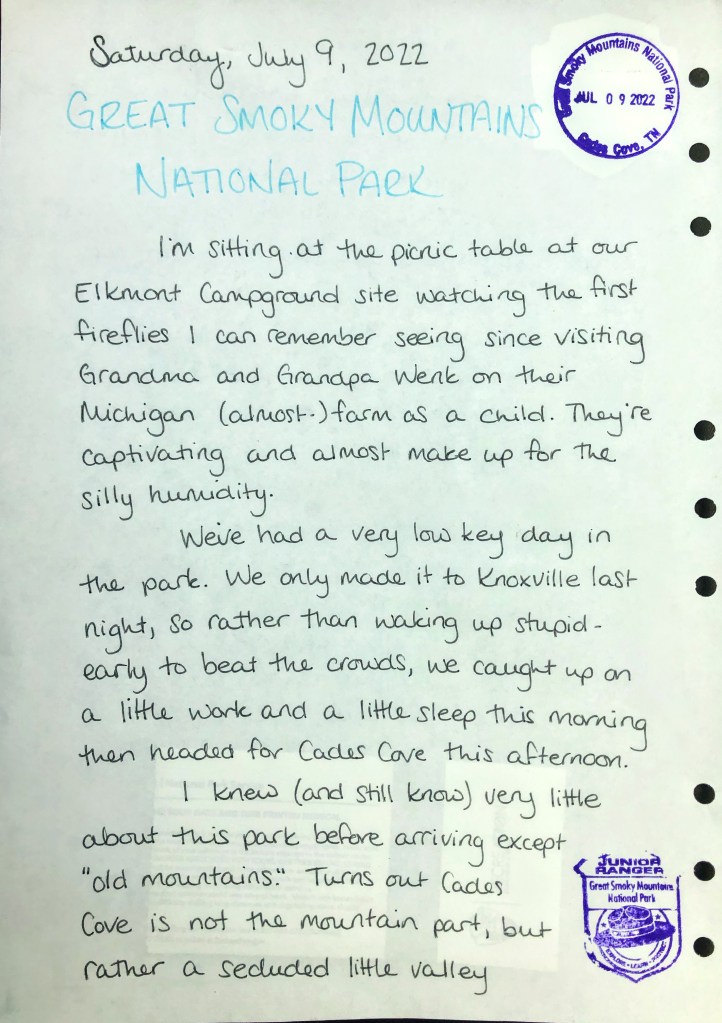 Saturday, July 9, 2022
Great Smoky Mountains National Park
JUL 09 2022
Cades Cove, TN
GREAT SMOKY MOUNTAINS
NATIONAL PARK
I'm sitting at the picnic table at our
Elkmont Campground site watching the first
fireflies I can remember seeing since visiting
Grandma and Grandpa Wenk on their
Michigan (almost-) farm as a child. They're
captivating and almost make up for the
silly humidity.
We've had a very low key day in
the park. We only made it to Knoxville last
night, so rather than waking up stupid-
early to beat the crowds, we caught up on
a little work and a little sleep this morning
then headed for Cades Cove this afternoon.
I knew (and still know) very little
about this park before arriving except
"old mountains." Turns out Cades
Cove is not the mountain part, but
rather a secluded little valley
JUNIOR
RANGER
Great Smoky Mountains
National Park
EXPLORE · LEARN · PROTECT